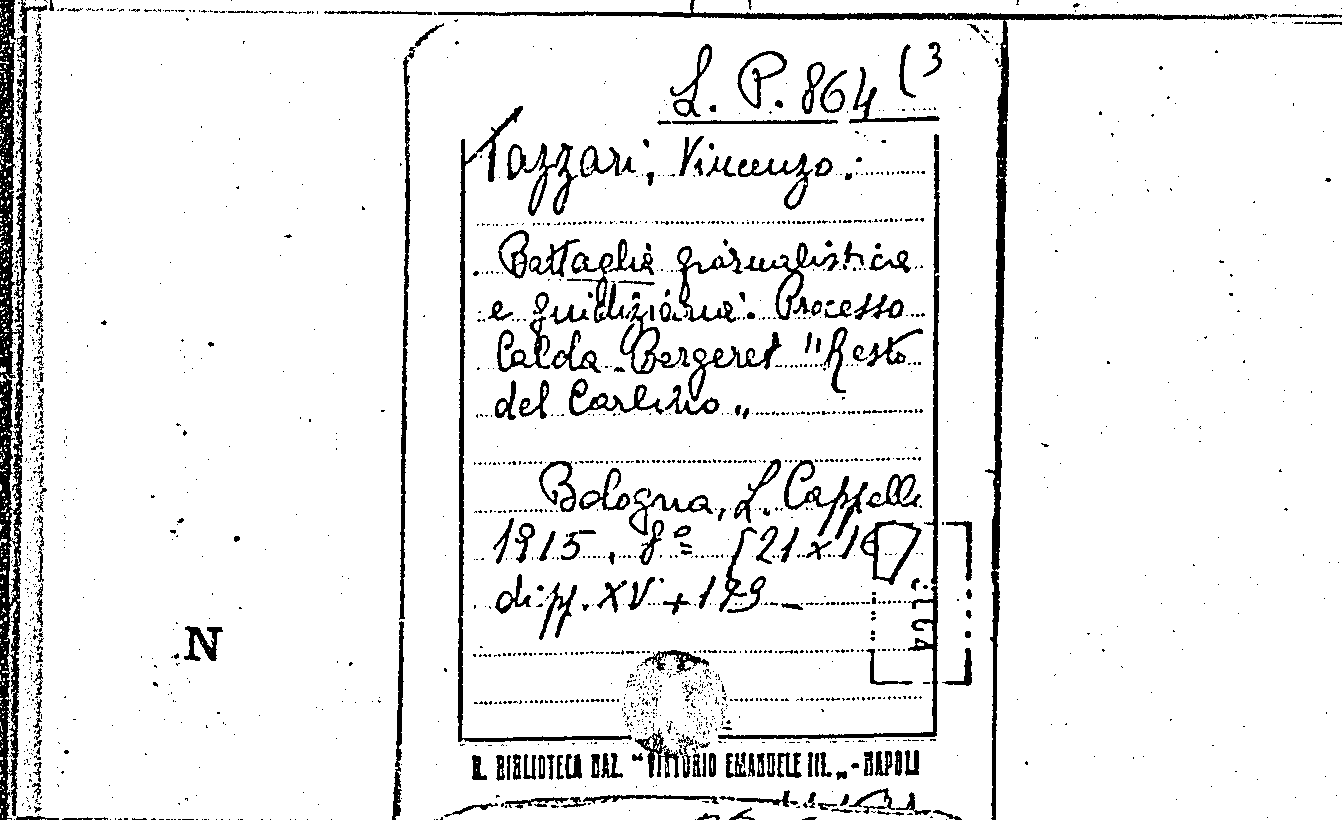 L. P. 864 (3
Tazzari, Vincenzo.
Battaglie giornalistiche
e giudiziarie. Processo
Calda - Bergeret "Resto
del Carlino„
Bologna, L. Cappelli
1915, 8º [21 x
di pp. XV +
N
R. BIBLIOTECA NAZ. "VITTORIO EMANUELE III.„ - NAPOLI